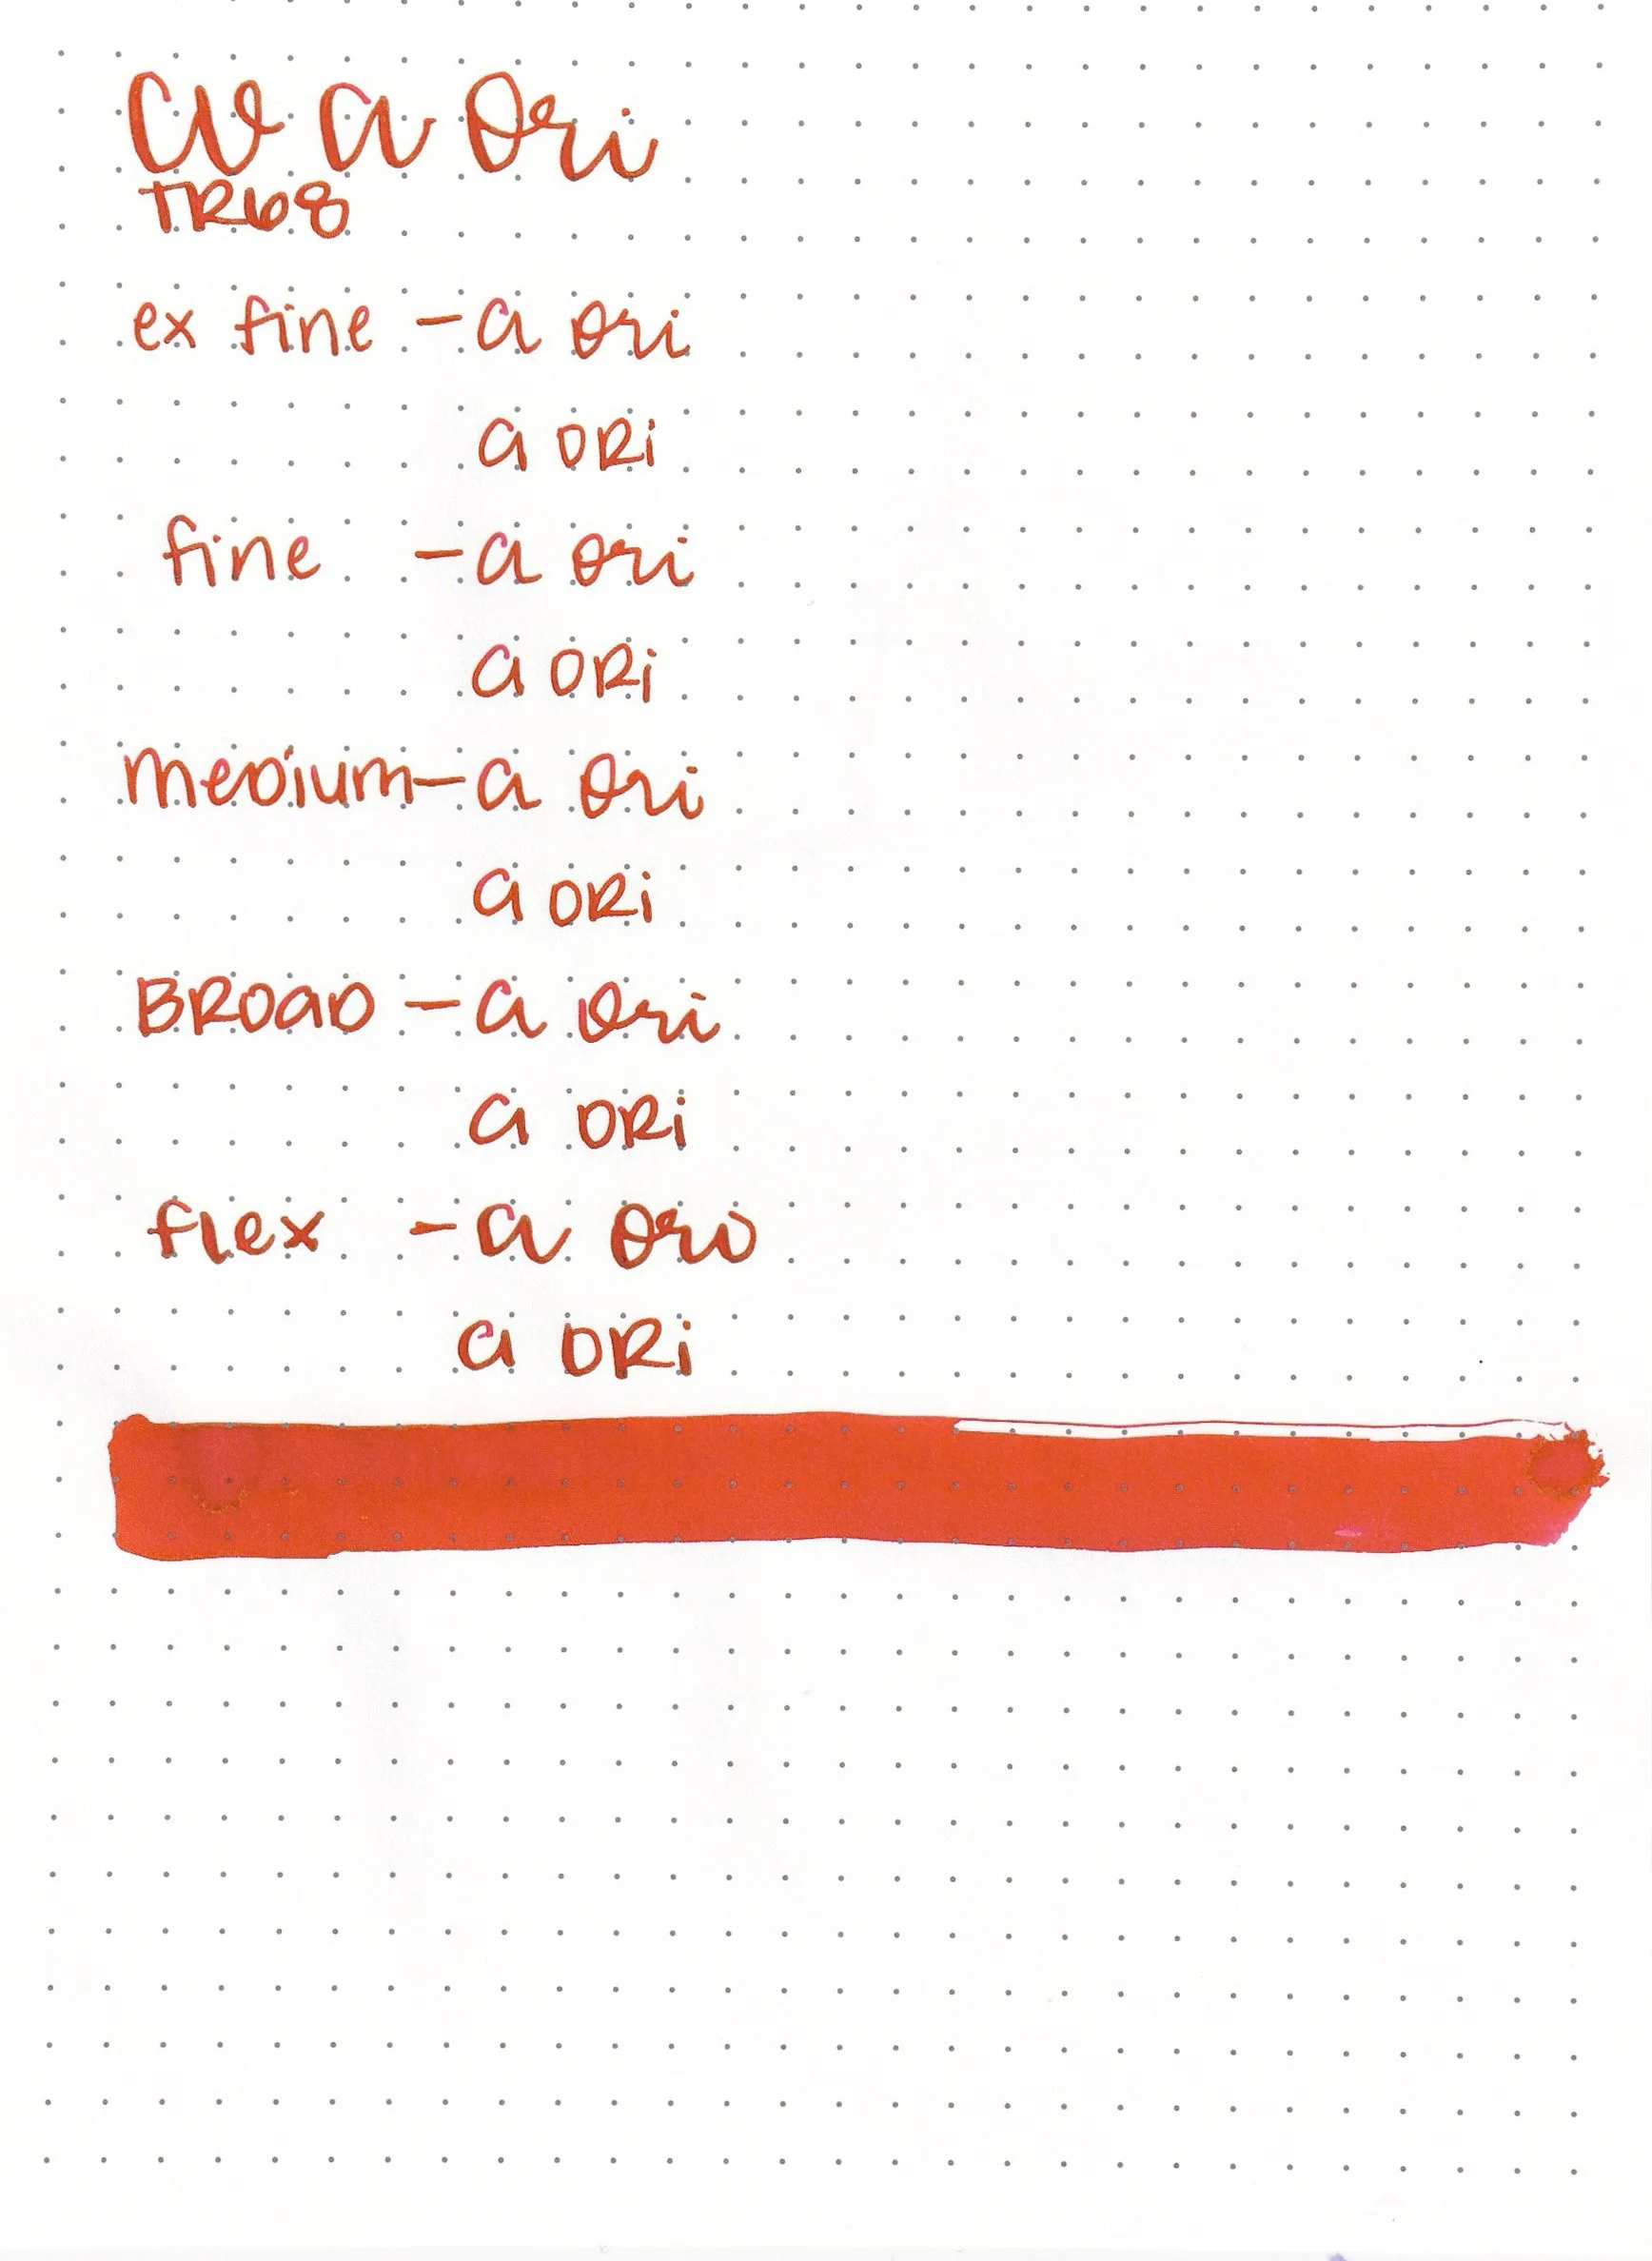 CV a Ori
TR68
ex fine - a Ori
a ORi
fine - a Ori
a ORi
meDium - a Ori
a ORi
BROaD - a Ori
a ORi
flex - a Ori
a ORi